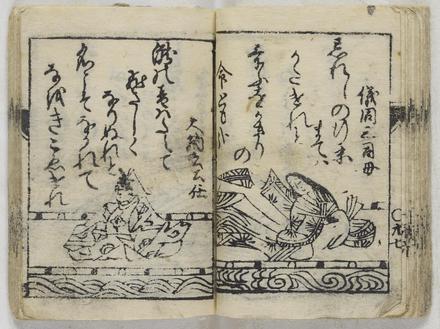 儀同三司母
わすれしの行末
まては
かたけれは
けふをかきりの
命ともか
大納言公任
瀧の音はたえて
久しく
なりぬれと
名こそなかれて
なをきこえけれ